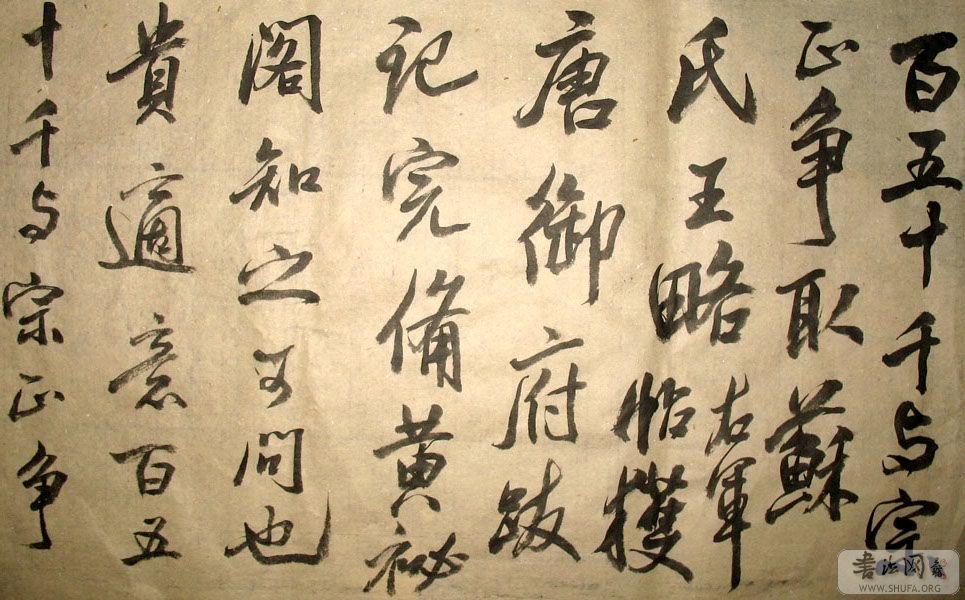 百五十千与宗
正争取蘇
氏王略
右軍
帖獲
唐御府跋
記完備黄祕
閣知之可問也
貴適意百五
十千与宗正争
書法网
WWW.SHUFA.ORG